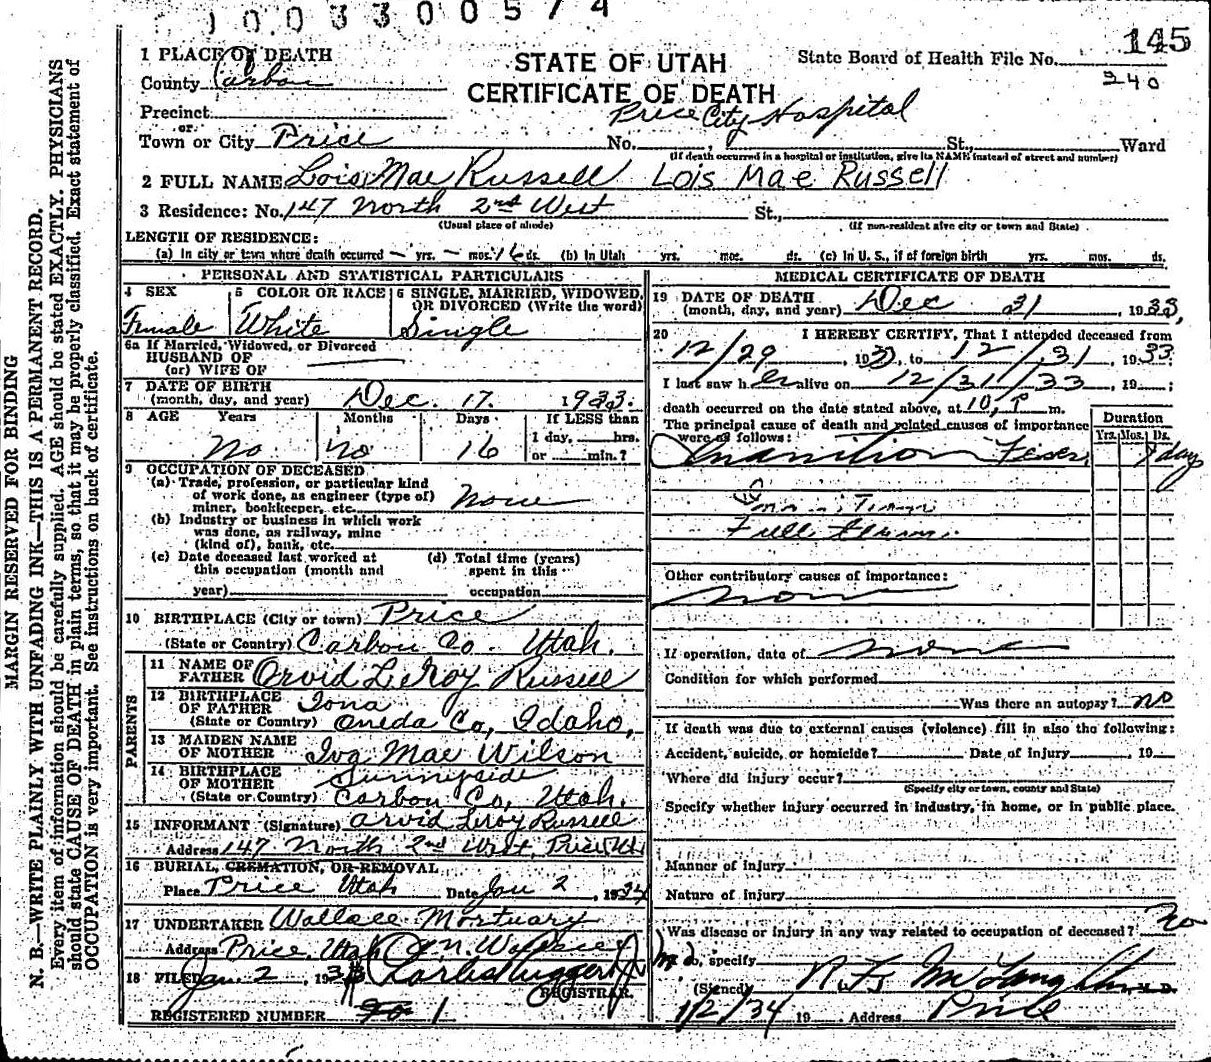 1003300574
145
1 PLACE OF DEATH
STATE OF UTAH
State Board of Health File No.
County Carbon
CERTIFICATE OF DEATH
340
Precinct
Price City Hospital
or
Town or City Price No. St., Ward
(If death occurred in a hospital or institution, give its NAME instead of street and number)
2 FULL NAME Lois Mae Russell Lois Mae Russell
3 Residence: No. 147 North 2nd West St.,
(Usual place of abode) (If non-resident give city or town and State)
LENGTH OF RESIDENCE:
(a) In city or town where death occurred — yrs. — mos. 16 ds. (b) In Utah yrs. mos. ds. (c) In U. S., if of foreign birth yrs. mos. ds.
PERSONAL AND STATISTICAL PARTICULARS
4 SEX 5 COLOR OR RACE 6 SINGLE, MARRIED, WIDOWED, OR DIVORCED (Write the word)
Female White Single
6a If Married, Widowed, or Divorced
HUSBAND OF
(or) WIFE OF
7 DATE OF BIRTH
(month, day, and year) Dec. 17. 1933.
8 AGE Years Months Days If LESS than
No no 16 1 day, hrs.
or min.?
9 OCCUPATION OF DECEASED
(a) Trade, profession, or particular kind
of work done, as engineer (type of)
miner, bookkeeper, etc. None
(b) Industry or business in which work
was done, as railway, mine
(kind of), bank, etc.
(c) Date deceased last worked at (d) Total time (years)
this occupation (month and spent in this
year) occupation
10 BIRTHPLACE (City or town) Price
(State or Country) Carbon Co. Utah.
PARENTS
11 NAME OF
FATHER Orvid LeRoy Russell
12 BIRTHPLACE
OF FATHER Iona
(State or Country) Oneda Co, Idaho,
13 MAIDEN NAME
OF MOTHER Iva Mae Wilson
14 BIRTHPLACE
OF MOTHER Sunnyside
(State or Country) Carbon Co, Utah.
15 INFORMANT (Signature) Arvid Leroy Russell
Address 147 North 2nd West, Price, Ut
16 BURIAL, CREMATION, OR REMOVAL
Place Price Utah Date Jan 2, 1934
17 UNDERTAKER Wallace Mortuary
Address Price, Utah
18 FILED Jan. 2, 193
REGISTRAR.
REGISTERED NUMBER 1
MEDICAL CERTIFICATE OF DEATH
19 DATE OF DEATH
(month, day, and year) Dec 31, 1933,
20 I HEREBY CERTIFY, That I attended deceased from
12/29 1933, to 12/31 1933
I last saw her alive on 12/31/33, 19 ;
death occurred on the date stated above, at 10, P m.
The principal cause of death and related causes of importance
were as follows: Duration
Yrs. Mos. Ds.
Inanition Fever day
Full
Other contributory causes of importance:
none
If operation, date of none
Condition for which performed
Was there an autopsy? no
If death was due to external causes (violence) fill in also the following:
Accident, suicide, or homicide? Date of injury, 19
Where did injury occur?
(Specify city or town, county and State)
Specify whether injury occurred in industry, in home, or in public place.
Manner of injury
Nature of injury
Was disease or injury in any way related to occupation of deceased? no
specify
(Signed) M. D.
1/2/34 19 Address Price
MARGIN RESERVED FOR BINDING
N. B.—WRITE PLAINLY WITH UNFADING INK—THIS IS A PERMANENT RECORD.
Every item of information should be carefully supplied. AGE should be stated EXACTLY. PHYSICIANS
should state CAUSE OF DEATH in plain terms, so that it may be properly classified. Exact statement of
OCCUPATION is very important. See instructions on back of certificate.